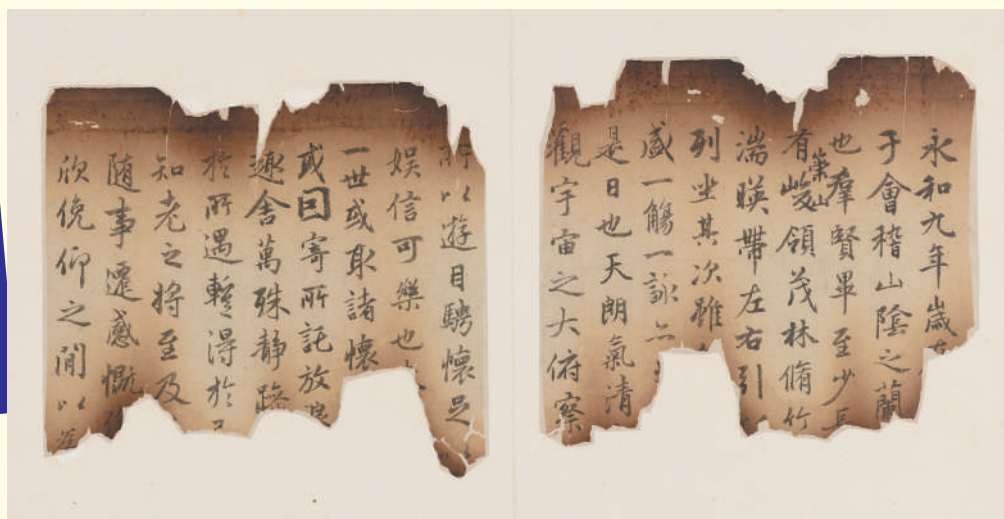 永和九年歲在
于會稽山陰之蘭
也羣賢畢至少長
有崇山峻領茂林脩竹
湍暎帶左右引
列坐其次雖
盛一觴一詠亦
是日也天朗氣清
觀宇宙之大俯察
所以遊目騁懷足
娛信可樂也
一世或取諸懷
或因寄所託放浪
趣舍萬殊靜躁
於所遇蹔得於
知老之將至及
隨事遷感慨
欣俛仰之間以